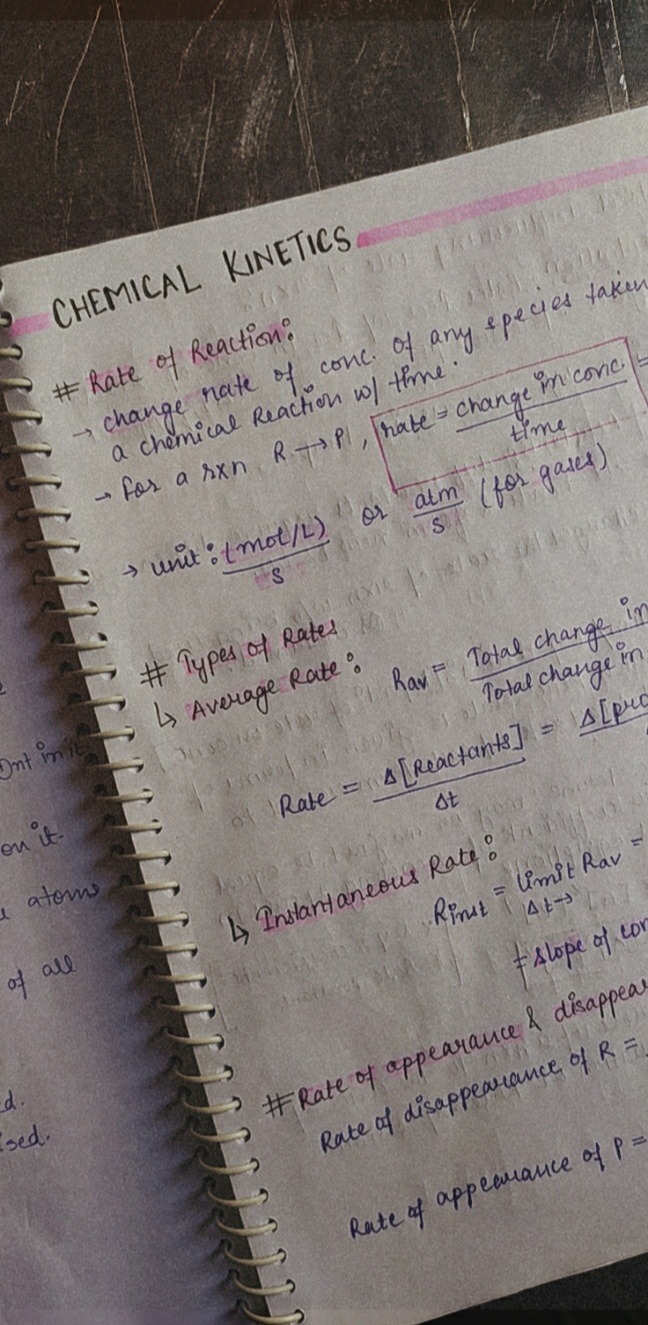 CHEMICAL KINETICS
# Rate of Reaction:
→ change rate of conc. of any species taken
a chemical Reaction w/ time.
→ for a rxn R → P, rate = change in conc. / time =
→ unit: (mol/L) / s or atm / s (for gases)
# Types of Rates
↳ Average Rate: Rav = Total change in / Total change in
Rate = Δ[Reactants] / Δt = Δ[pro
↳ Instantaneous Rate:
Rinst = limit Rav =
Δt→
± Slope of
# Rate of appearance & disappear
Rate of disappearance of R =
Rate of appearance of P =
on it
atoms
of all